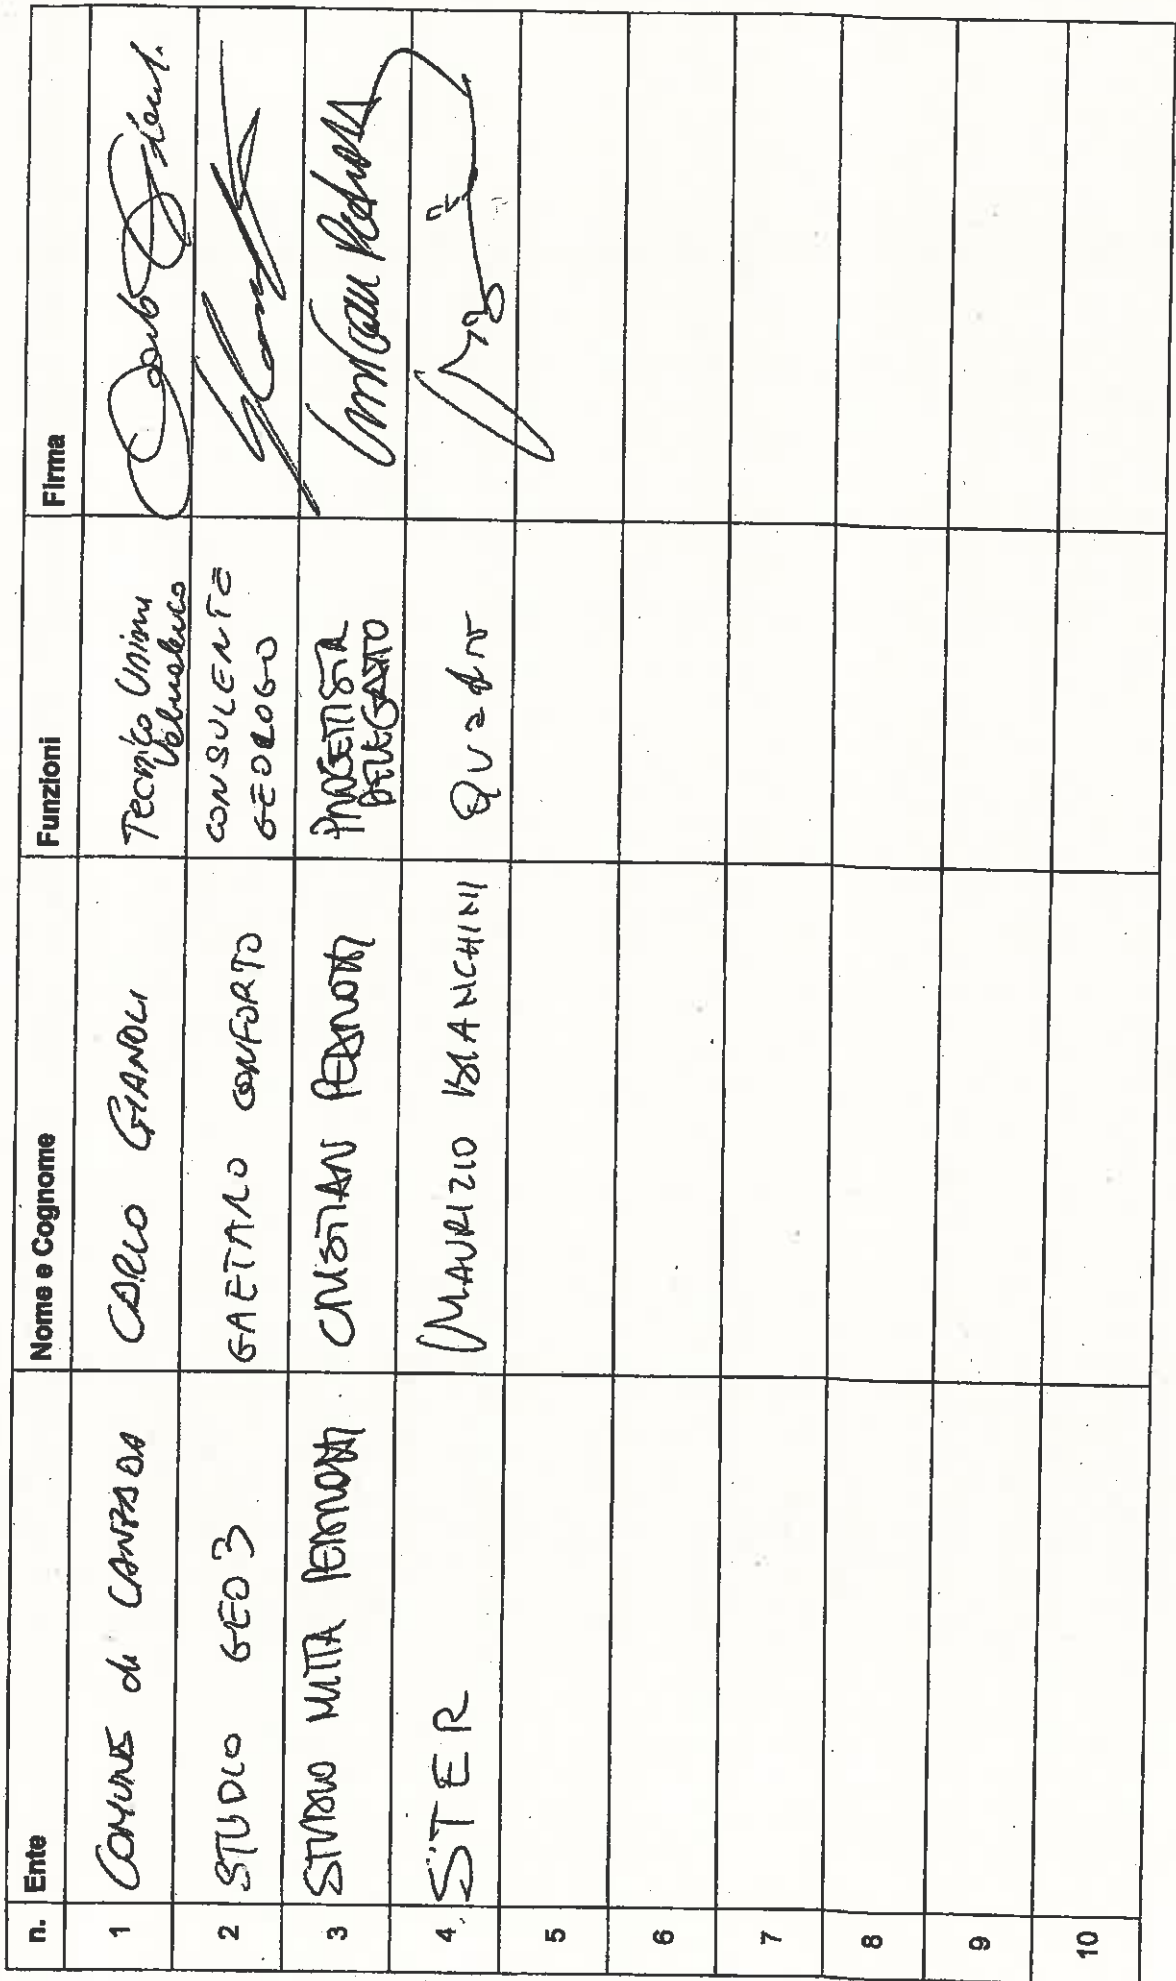 n. Ente Nome e Cognome Funzioni Firma
1 COMUNE di CARLO GIANOLI Tecnico Unione
2 STUDIO GEO 3 GAETANO CONFORTO CONSULENTE
GEOLOGO
3 STUDIO MITTA PEDROTTI CRISTIAN PEDROTTI PROGETTISTA
DELEGATO
4 STER MAURIZIO BIANCHINI
5
6
7
8
9
10